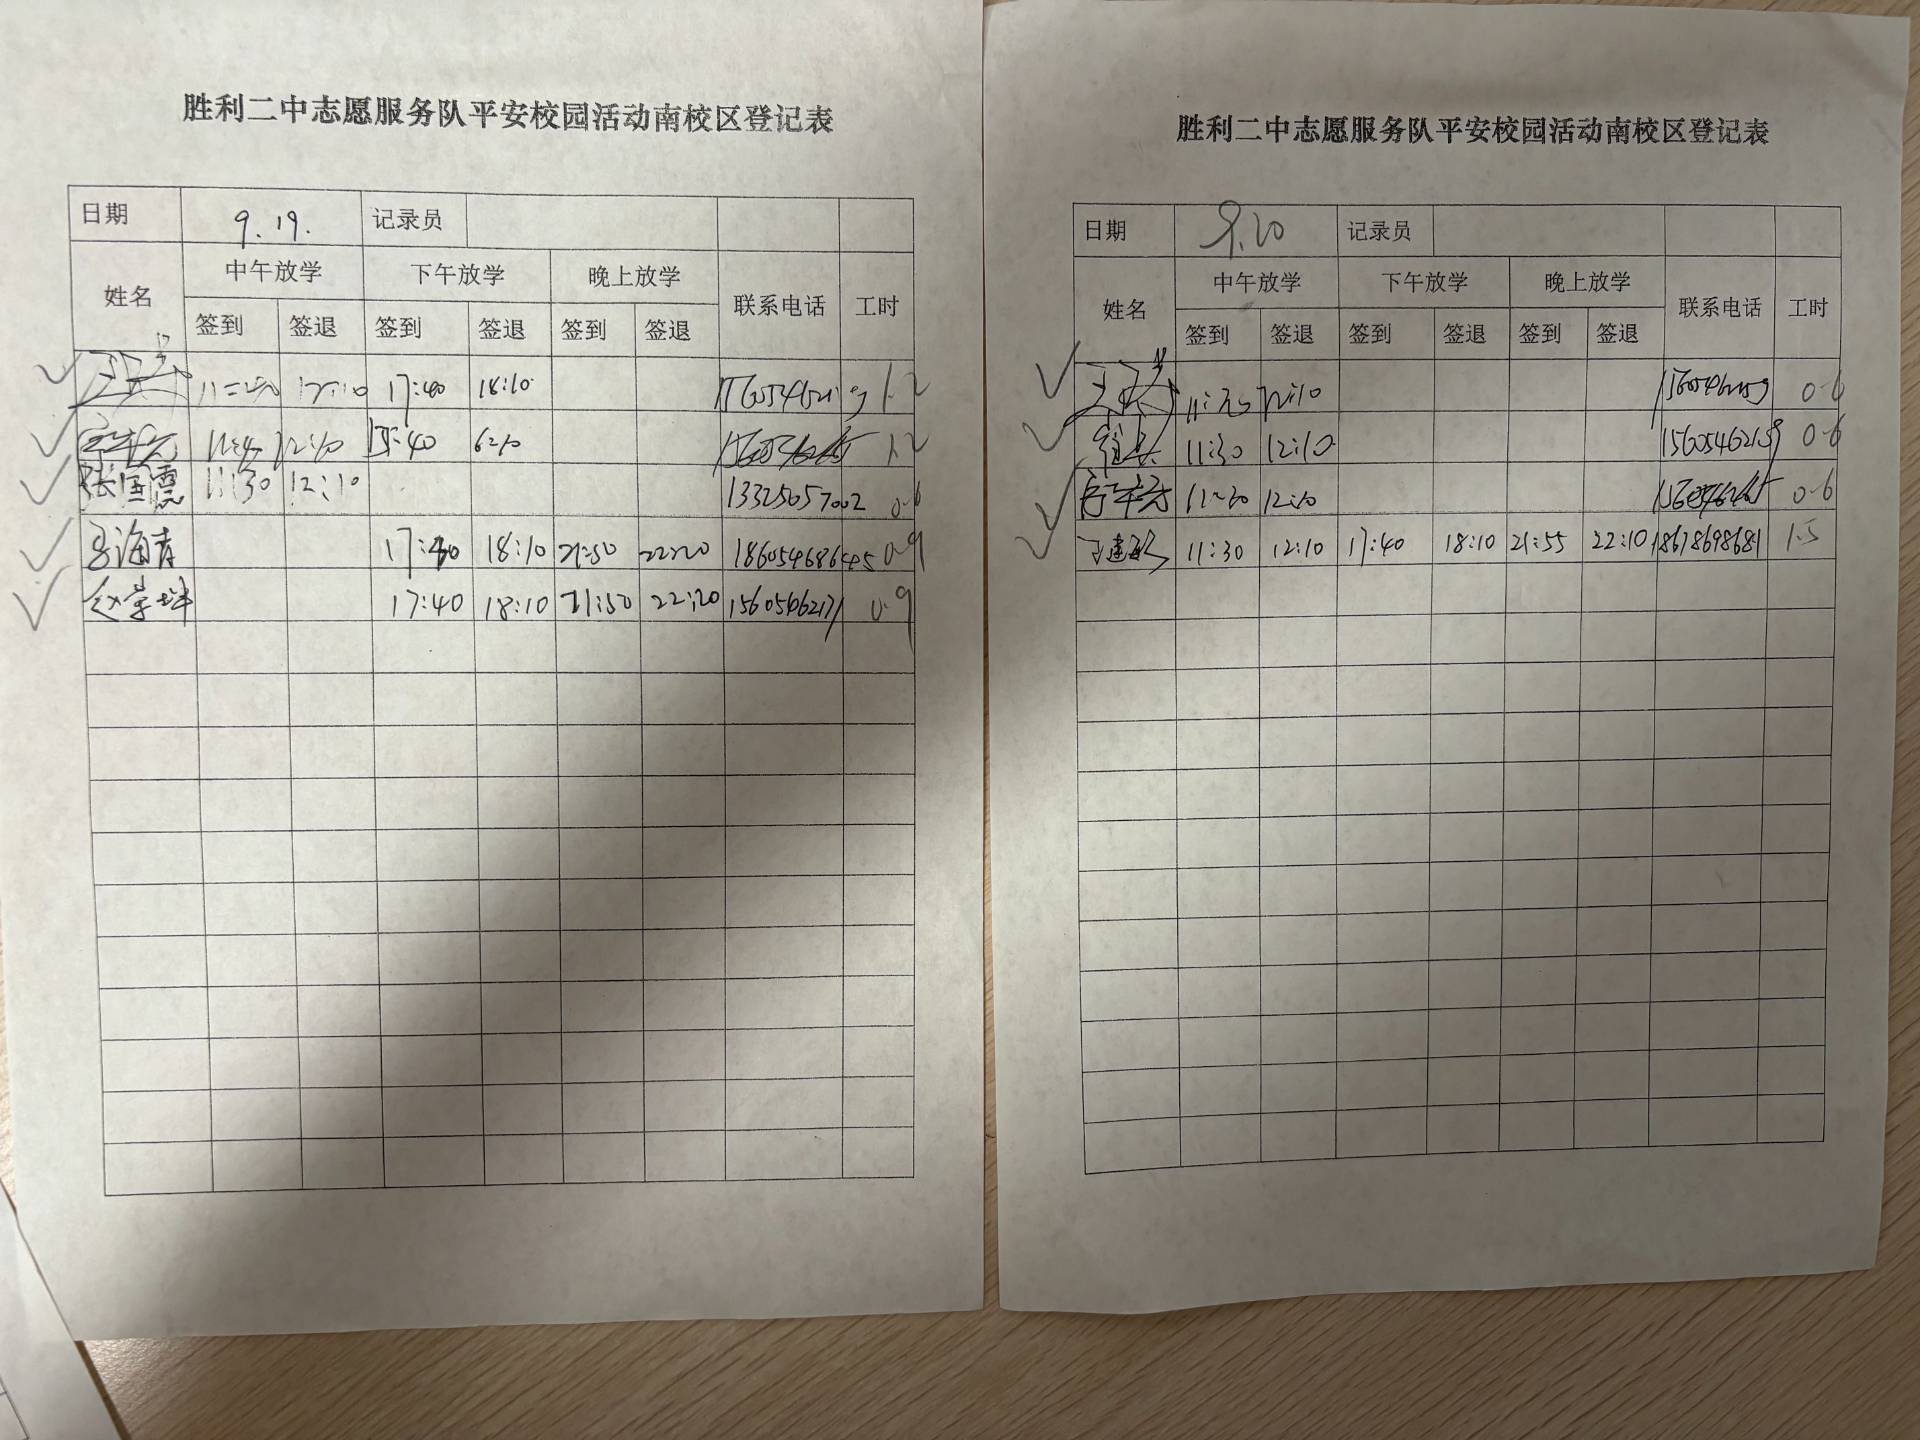 胜利二中志愿服务队平安校园活动南校区登记表
日期 9.19. 记录员
姓名 中午放学 下午放学 晚上放学 联系电话 工时
签到 签退 签到 签退 签到 签退
12:10 17:40 18:10 1.2
12:10 15:40 6:10 1.2
张国震 11:30 12:10 13325057002 0.6
海青 17:40 18:10 21:50 22:20 18605468645 0.9
赵崇坤 17:40 18:10 21:50 22:20 15605462171 0.9
胜利二中志愿服务队平安校园活动南校区登记表
日期 9.20 记录员
姓名 中午放学 下午放学 晚上放学 联系电话 工时
签到 签退 签到 签退 签到 签退
12:10 15605462159 0.6
11:30 12:10 15605462159 0.6
11:30 12:10 0.6
11:30 12:10 17:40 18:10 21:55 22:10 18678698681 1.5